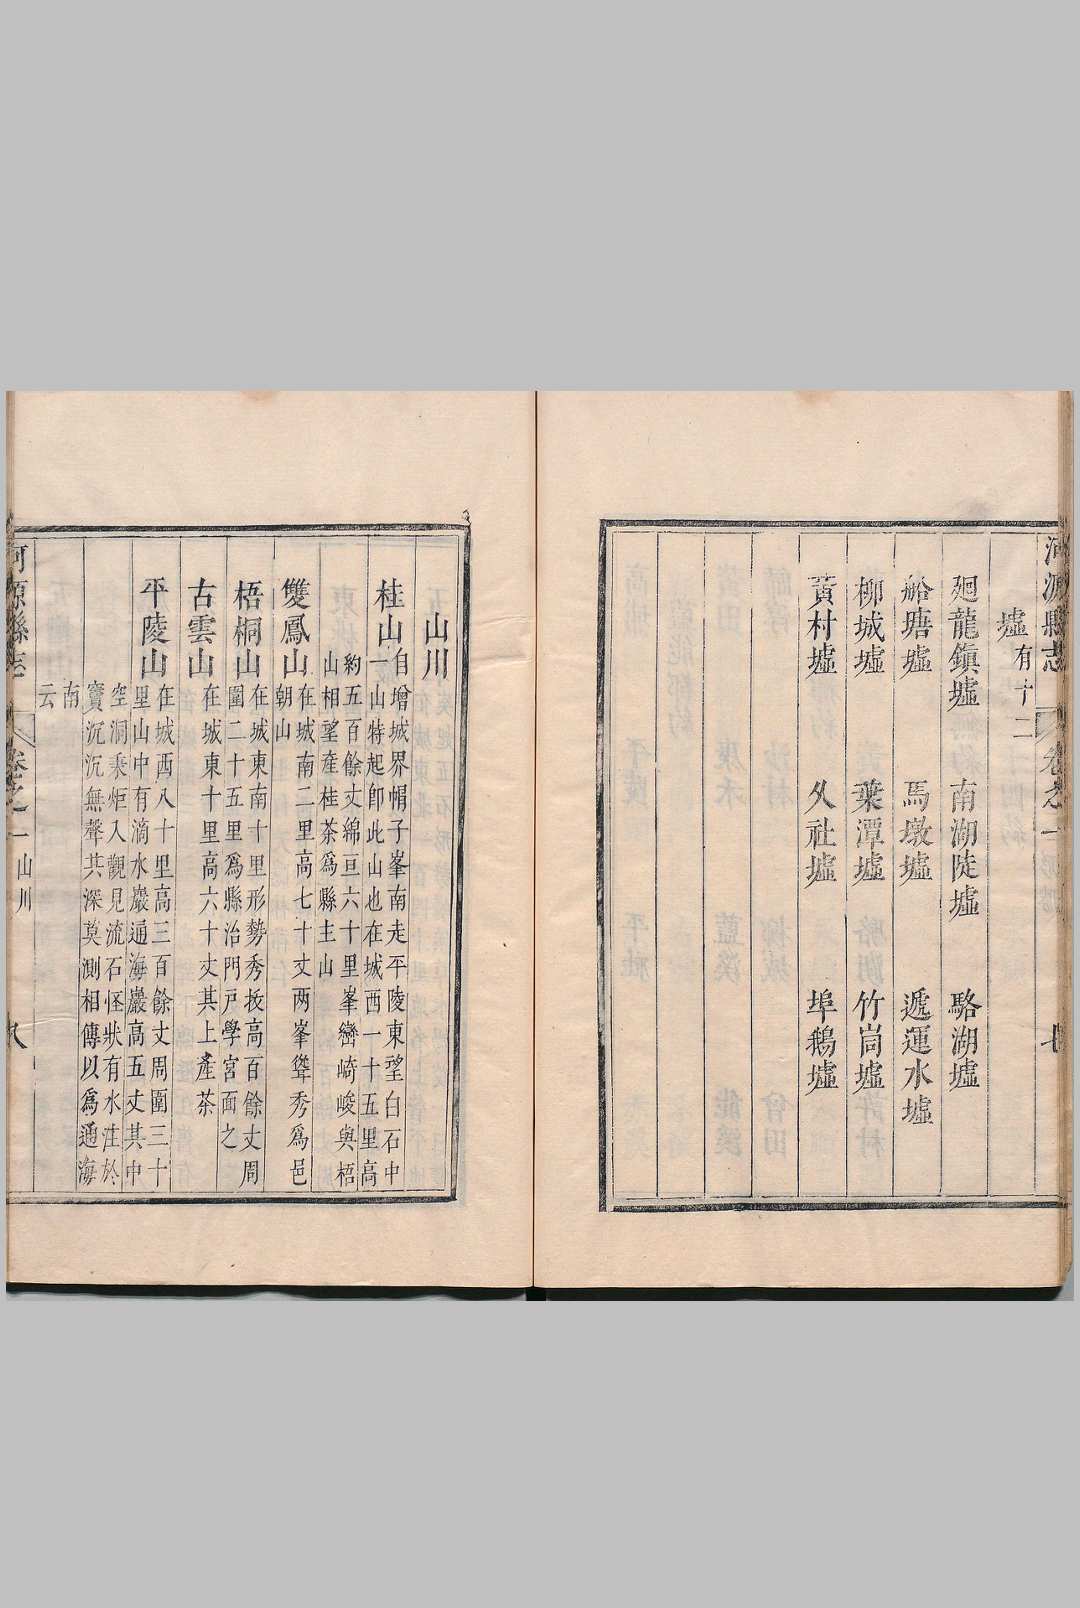 河源縣志 卷之一 七
墟有十二
廻龍鎮墟 南湖陡墟 駱湖墟
船塘墟 馬墩墟 遞運水墟
柳城墟 葉潭墟 竹崗墟
黃村墟 久社墟 埠鵝墟
山川
桂山自增城界帽子峯南走平陵東望白石中
一山特起卽此山也在城西一十五里高
約五百餘丈綿亘六十里峯巒崎峻與梧
山相望產桂茶爲縣主山
雙鳳山在城南二里高七十丈两峯聳秀爲邑
朝山
梧桐山在城東南十里形勢秀拔高百餘丈周
圍二十五里爲縣治門戸學宮面之
古雲山在城東十里高六十丈其上產茶
平陵山在城西八十里高三百餘丈周圍三十
里山中有滴水巖通海巖高五丈其中
空洞秉炬入觀見流石怪狀有水注於
竇沉沉無聲其深莫測相傳以爲通海
南
云
河源縣志 卷之一 山川 八